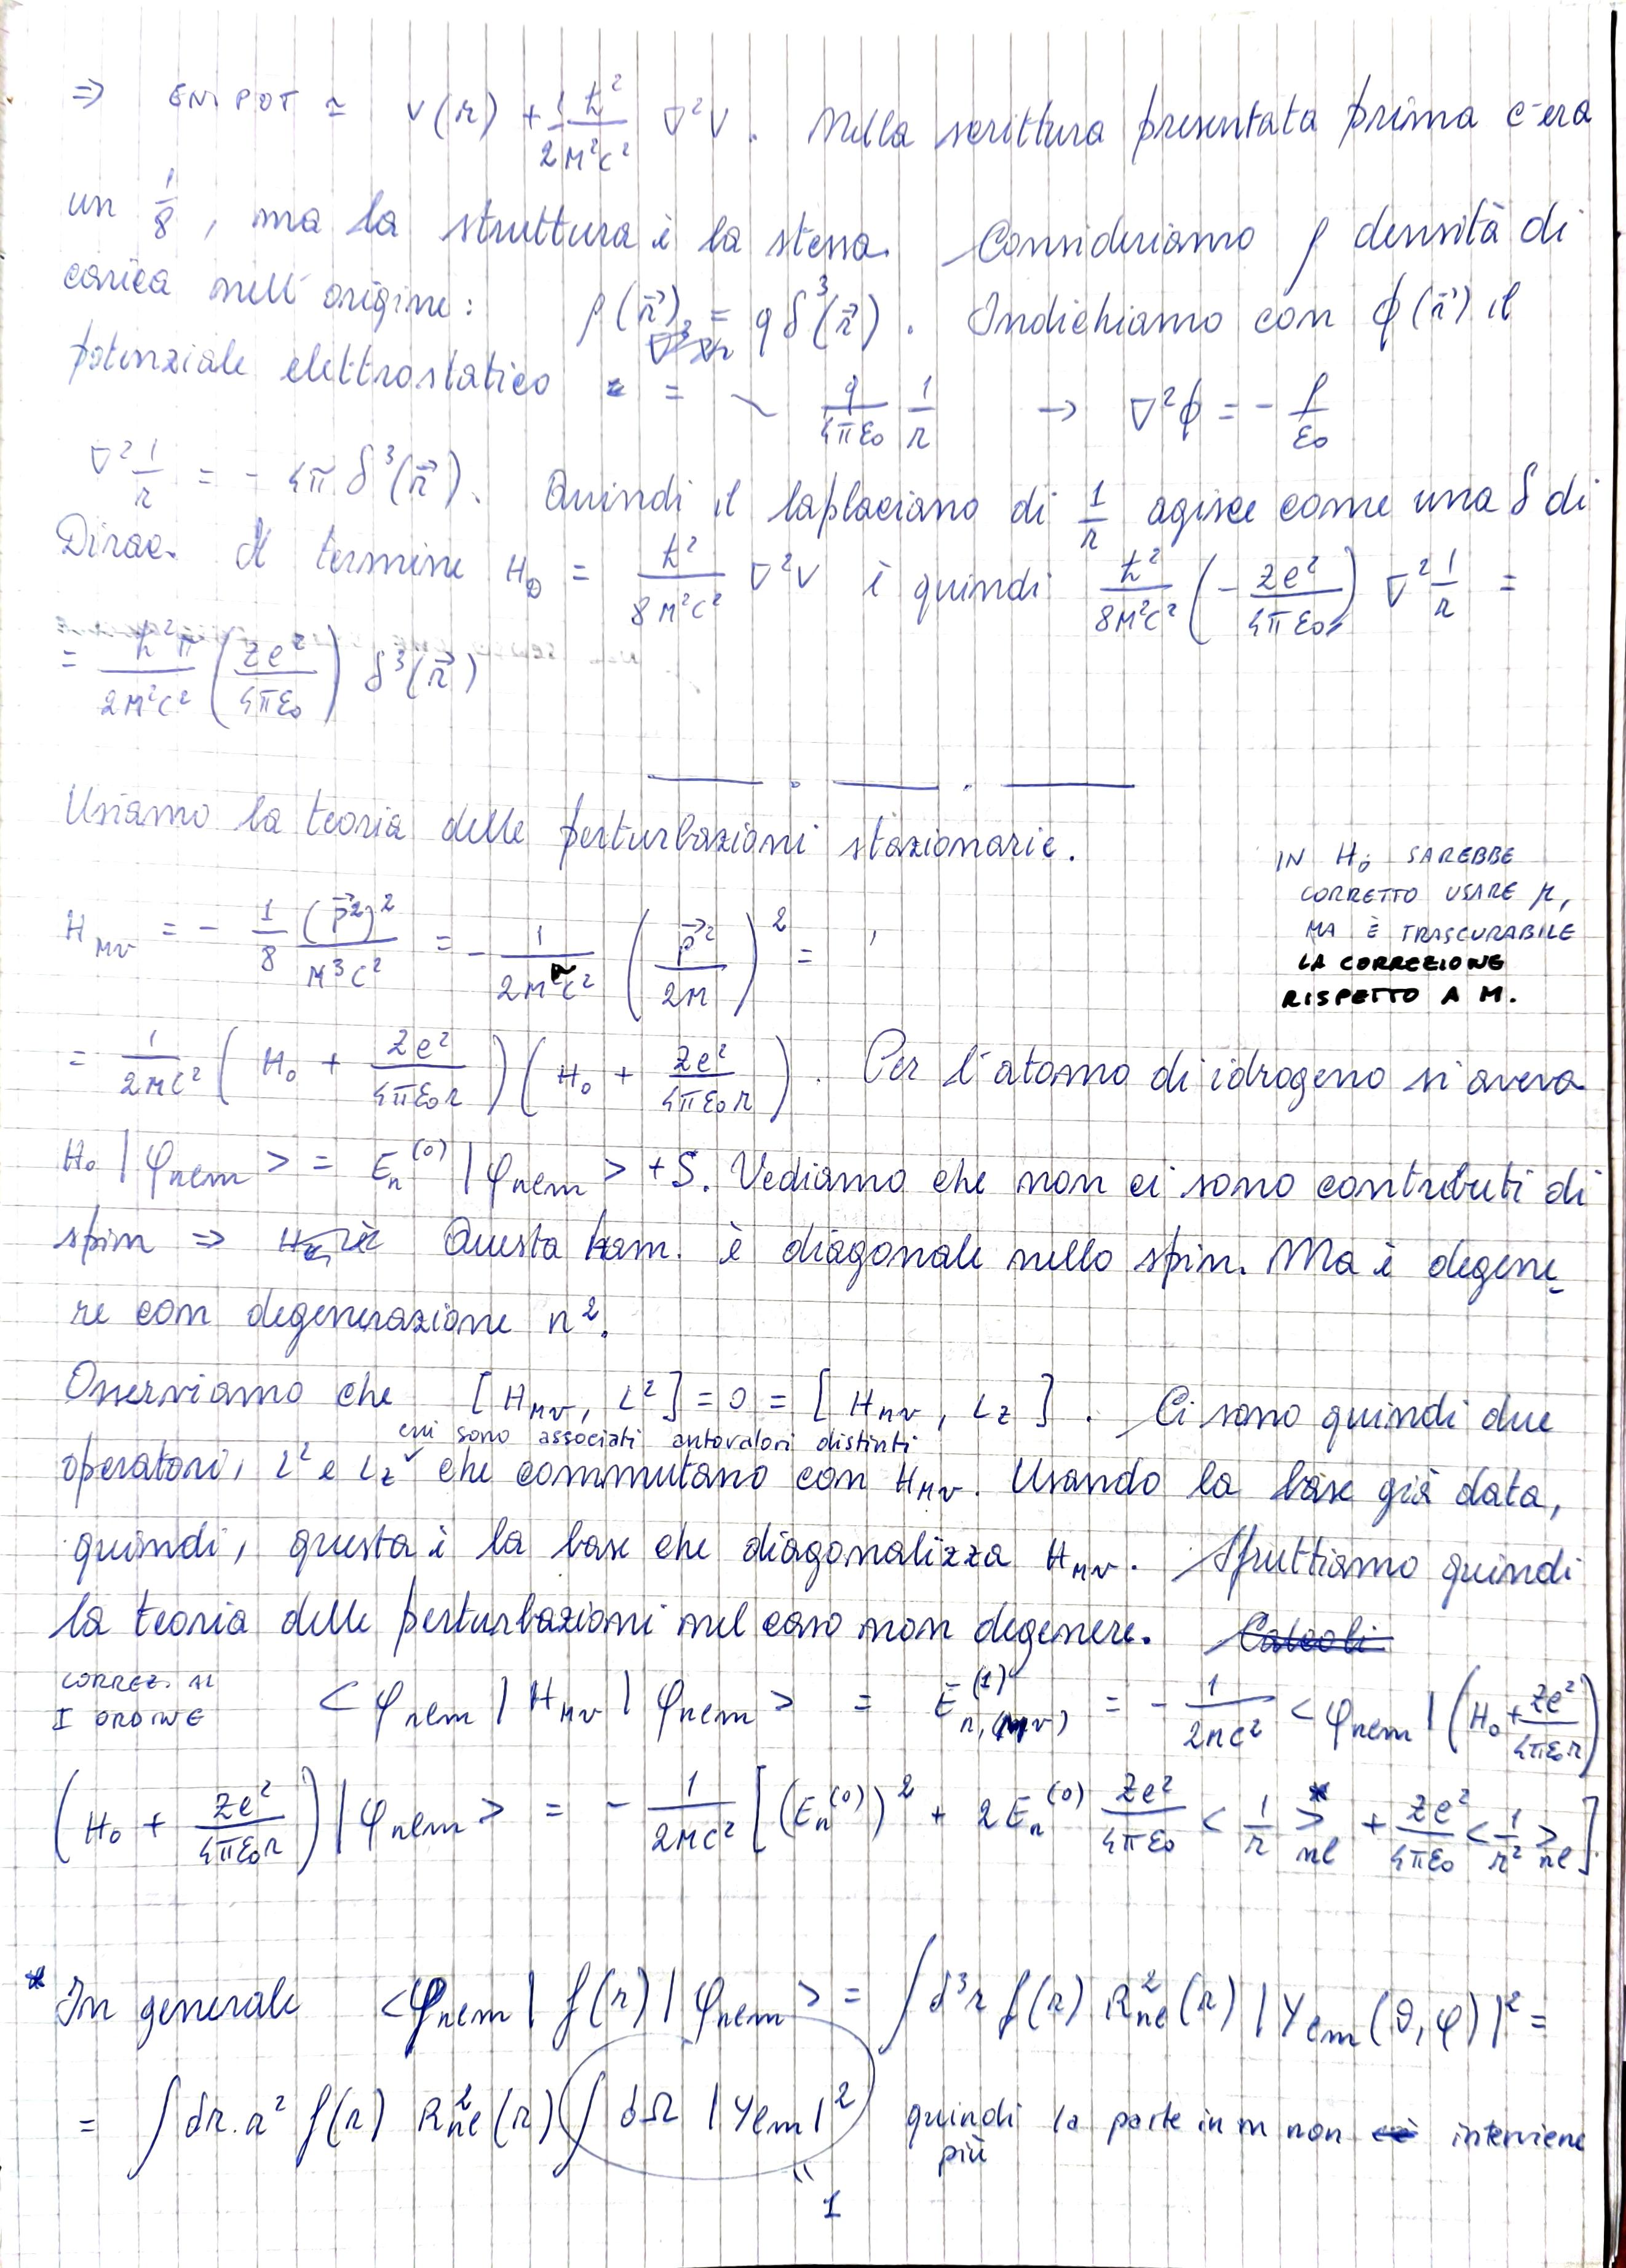 ⇒ EN. POT ≃ V(r) + 1/2 ħ²/M²c² ∇²V. Nella scrittura presentata prima c'era
un 1/8, ma la struttura è la stessa. Consideriamo ρ densità di
carica nell'origine: ρ(r⃗) = qδ³(r⃗). Indichiamo con ϕ(r⃗) il
potenziale elettrostatico = q/4πε₀ 1/r → ∇²ϕ = - ρ/ε₀
∇² 1/r = - 4π δ³(r⃗). Quindi il laplaciano di 1/r agisce come una δ di
Dirac. Il termine H_D = ħ²/8M²c² ∇²V è quindi ħ²/8M²c² (- Ze²/4πε₀) ∇² 1/r =
= ħ²π/2M²c² (Ze²/4πε₀) δ³(r⃗)
Usiamo la teoria delle perturbazioni stazionarie.
IN H₀ SAREBBE
CORRETTO USARE μ,
MA È TRASCURABILE
LA CORREZIONE
RISPETTO A M.
H_mv = - 1/8 (p⃗²)²/M³c² = - 1/2Mc² (p⃗²/2M)² =
= 1/2Mc² (H₀ + Ze²/4πε₀r)(H₀ + Ze²/4πε₀r). Per l'atomo di idrogeno si aveva
H₀ |φnlm> = En⁽⁰⁾ |φnlm> + S. Vediamo che non ci sono contributi di
spin ⇒ Questa ham. è diagonale nello spin. Ma è degene-
re con degenerazione n².
Osserviamo che [H_mv, L²] = 0 = [H_mv, Lz]. Ci sono quindi due
cui sono associati autovalori distinti
operatori, L² e Lz ˅ che commutano con H_mv. Usando la base già data,
quindi, questa è la base che diagonalizza H_mv. Sfruttiamo quindi
la teoria delle perturbazioni nel caso non degenere. Calcoli
CORREZ. AL
I ORDINE
<φnlm | H_mv | φnlm> = E⁽¹⁾n,(mv) = - 1/2mc² <φnlm | (H₀ + Ze²/4πε₀r)
(H₀ + Ze²/4πε₀r) |φnlm> = - 1/2Mc² [(En⁽⁰⁾)² + 2En⁽⁰⁾ Ze²/4πε₀ <1/r>*nl + Ze²/4πε₀ <1/r²>nl].
* In generale <φnlm | f(r) | φnlm> = ∫d³r f(r) R²nl(r) |Ylm(θ,φ)|² =
= ∫dr·r² f(r) R²nl(r) ∫dΩ |Ylm|² quindi la parte in m non interviene
più
"
1